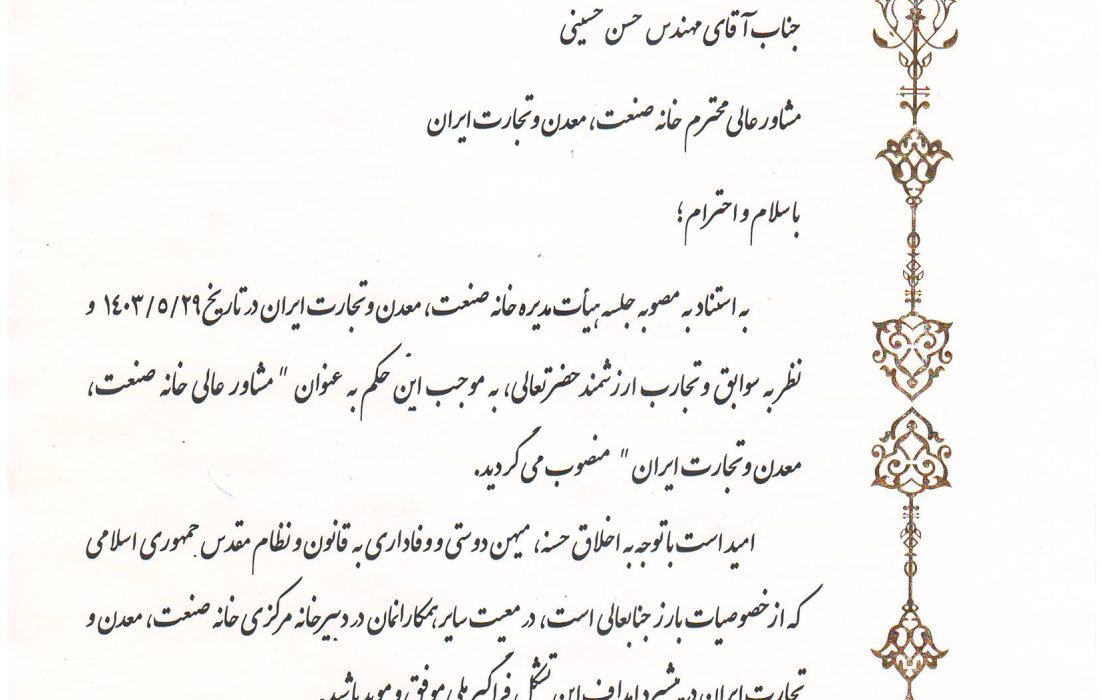 جناب آقای مهندس حسن حسینی
مشاور عالی محترم خانه صنعت، معدن و تجارت ایران
با سلام و احترام؛
به استناد به مصوبه جلسه هیأت مدیره خانه صنعت، معدن و تجارت ایران در تاریخ ۱۴۰۳/۵/۲۹ و
نظر به سوابق و تجارب ارزشمند حضرتعالی، به موجب این حکم به عنوان " مشاور عالی خانه صنعت،
معدن و تجارت ایران " منصوب می گردید.
امید است با توجه به اخلاق حسنه، میهن دوستی و وفاداری به قانون و نظام مقدس جمهوری اسلامی
که از خصوصیات بارز جنابعالی است، در معیت سایر همکارانمان در دبیرخانه مرکزی خانه صنعت، معدن و
تجارت ایران در پیشبرد اهداف این تشکل فراگیر ملی موفق و موید باشید.